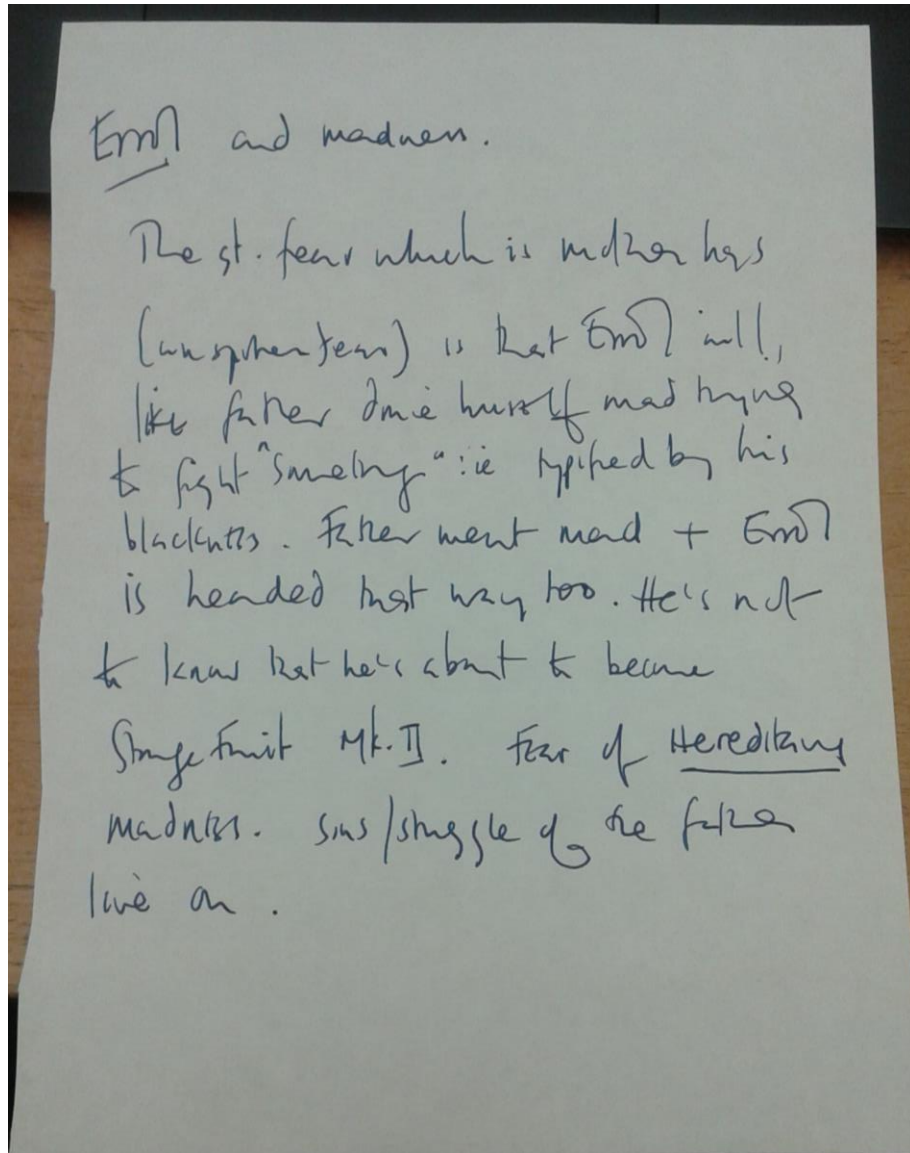 Errol and madness.
The gt. fear which is mother has
(unspoken fear) is that Errol will,
like father drive himself mad trying
to fight "something": ie typified by his
blackness. Father went mad + Errol
is headed that way too. He's not
to know that he's about to become
Strange Fruit Mk. II. Fear of Hereditary
madness. Sins/struggle of the father
live on.